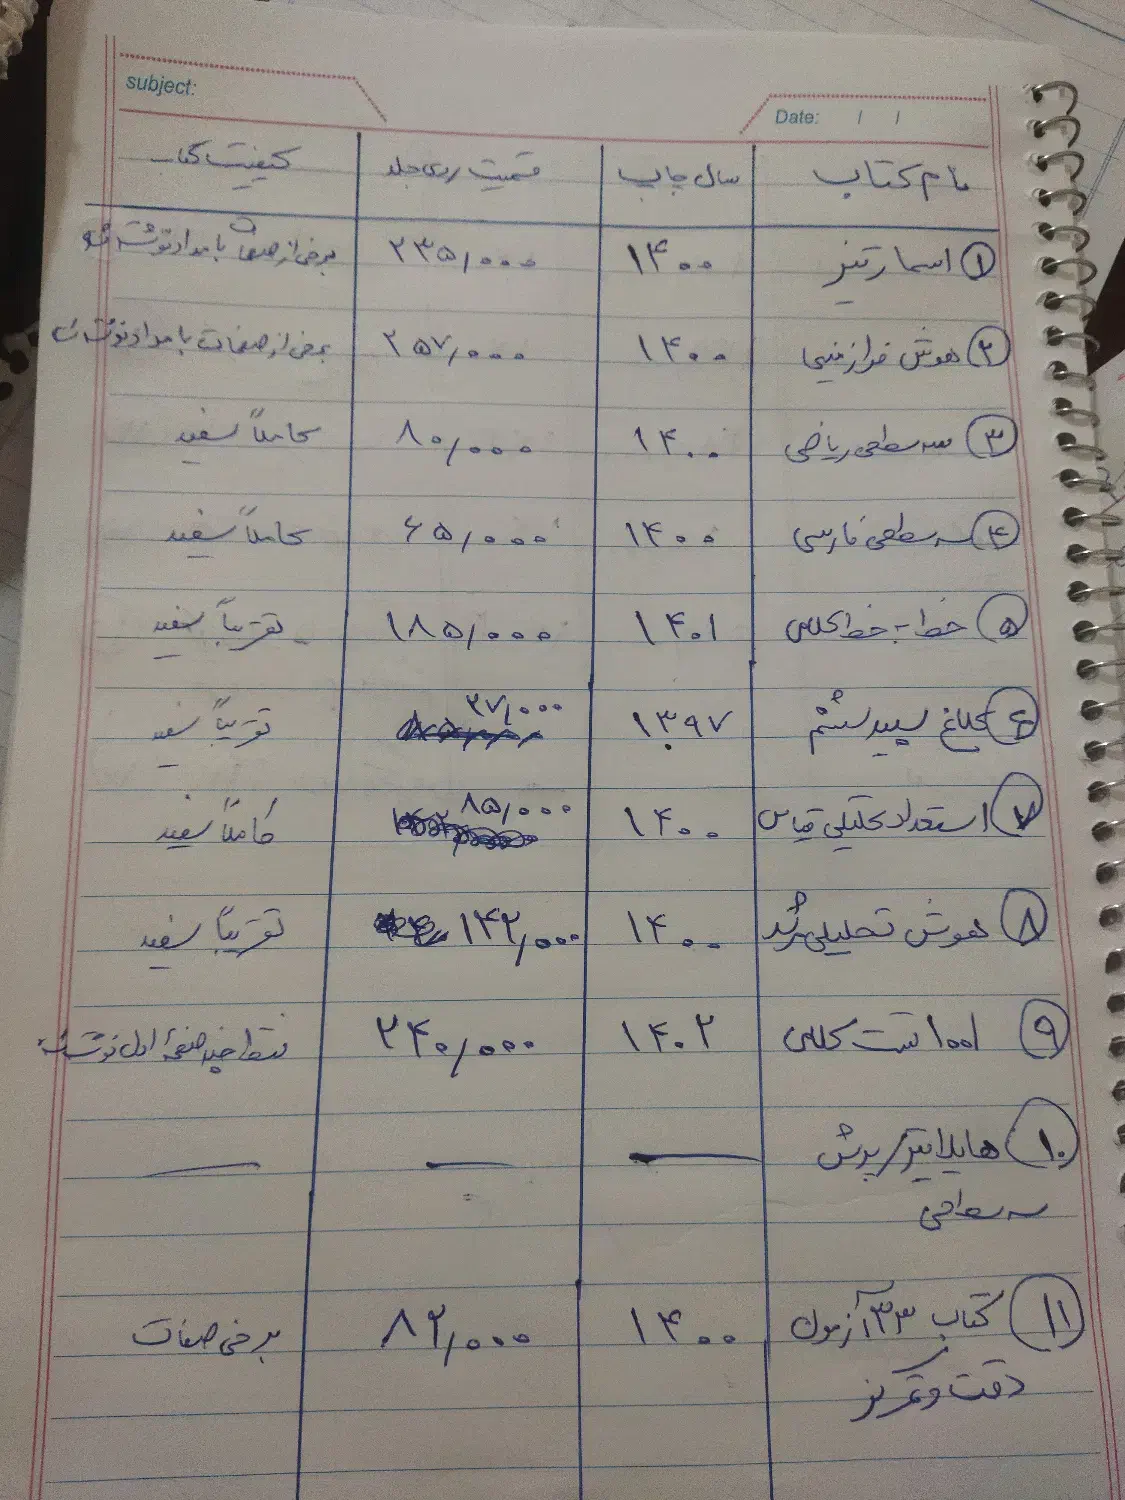 subject:
Date: / /
نام کتاب سال چاپ قیمت روی جلد کیفیت کتاب
۱ اسمارتیز ۱۴۰۰ ۲۳۵,۰۰۰ برخی از صفحات با مداد نوشته شده
۲ هوش فرازمینیها ۱۴۰۰ ۲۵۷,۰۰۰ برخی از صفحات با مداد نوشته شده
۳ سه سطحی ریاضی ۱۴۰۰ ۸۰,۰۰۰ کاملاً سفید
۴ سه سطحی فارسی ۱۴۰۰ ۶۵,۰۰۰ کاملاً سفید
۵ خط به خط کلاس ۱۴۰۱ ۱۸۵,۰۰۰ تقریباً سفید
۶ کلاغ سپید ششم ۱۳۹۷ ۳۷,۰۰۰ تقریباً سفید
۷ استعداد تحلیلی قیاس ۱۴۰۰ ۸۵,۰۰۰ کاملاً سفید
۸ هوش تحلیلی مرشد ۱۴۰۰ ۱۴۲,۰۰۰ تقریباً سفید
۹ ۱۰۰۱ تست ۱۴۰۲ ۲۴۰,۰۰۰ فقط چند صفحه اول نوشته شده
۱۰ هایلایتر پرش — — —
سه سطحی
۱۱ کتاب ۳۳ آزمون ۱۴۰۰ ۸۲,۰۰۰ برخی صفحات
دقت و تمرکز